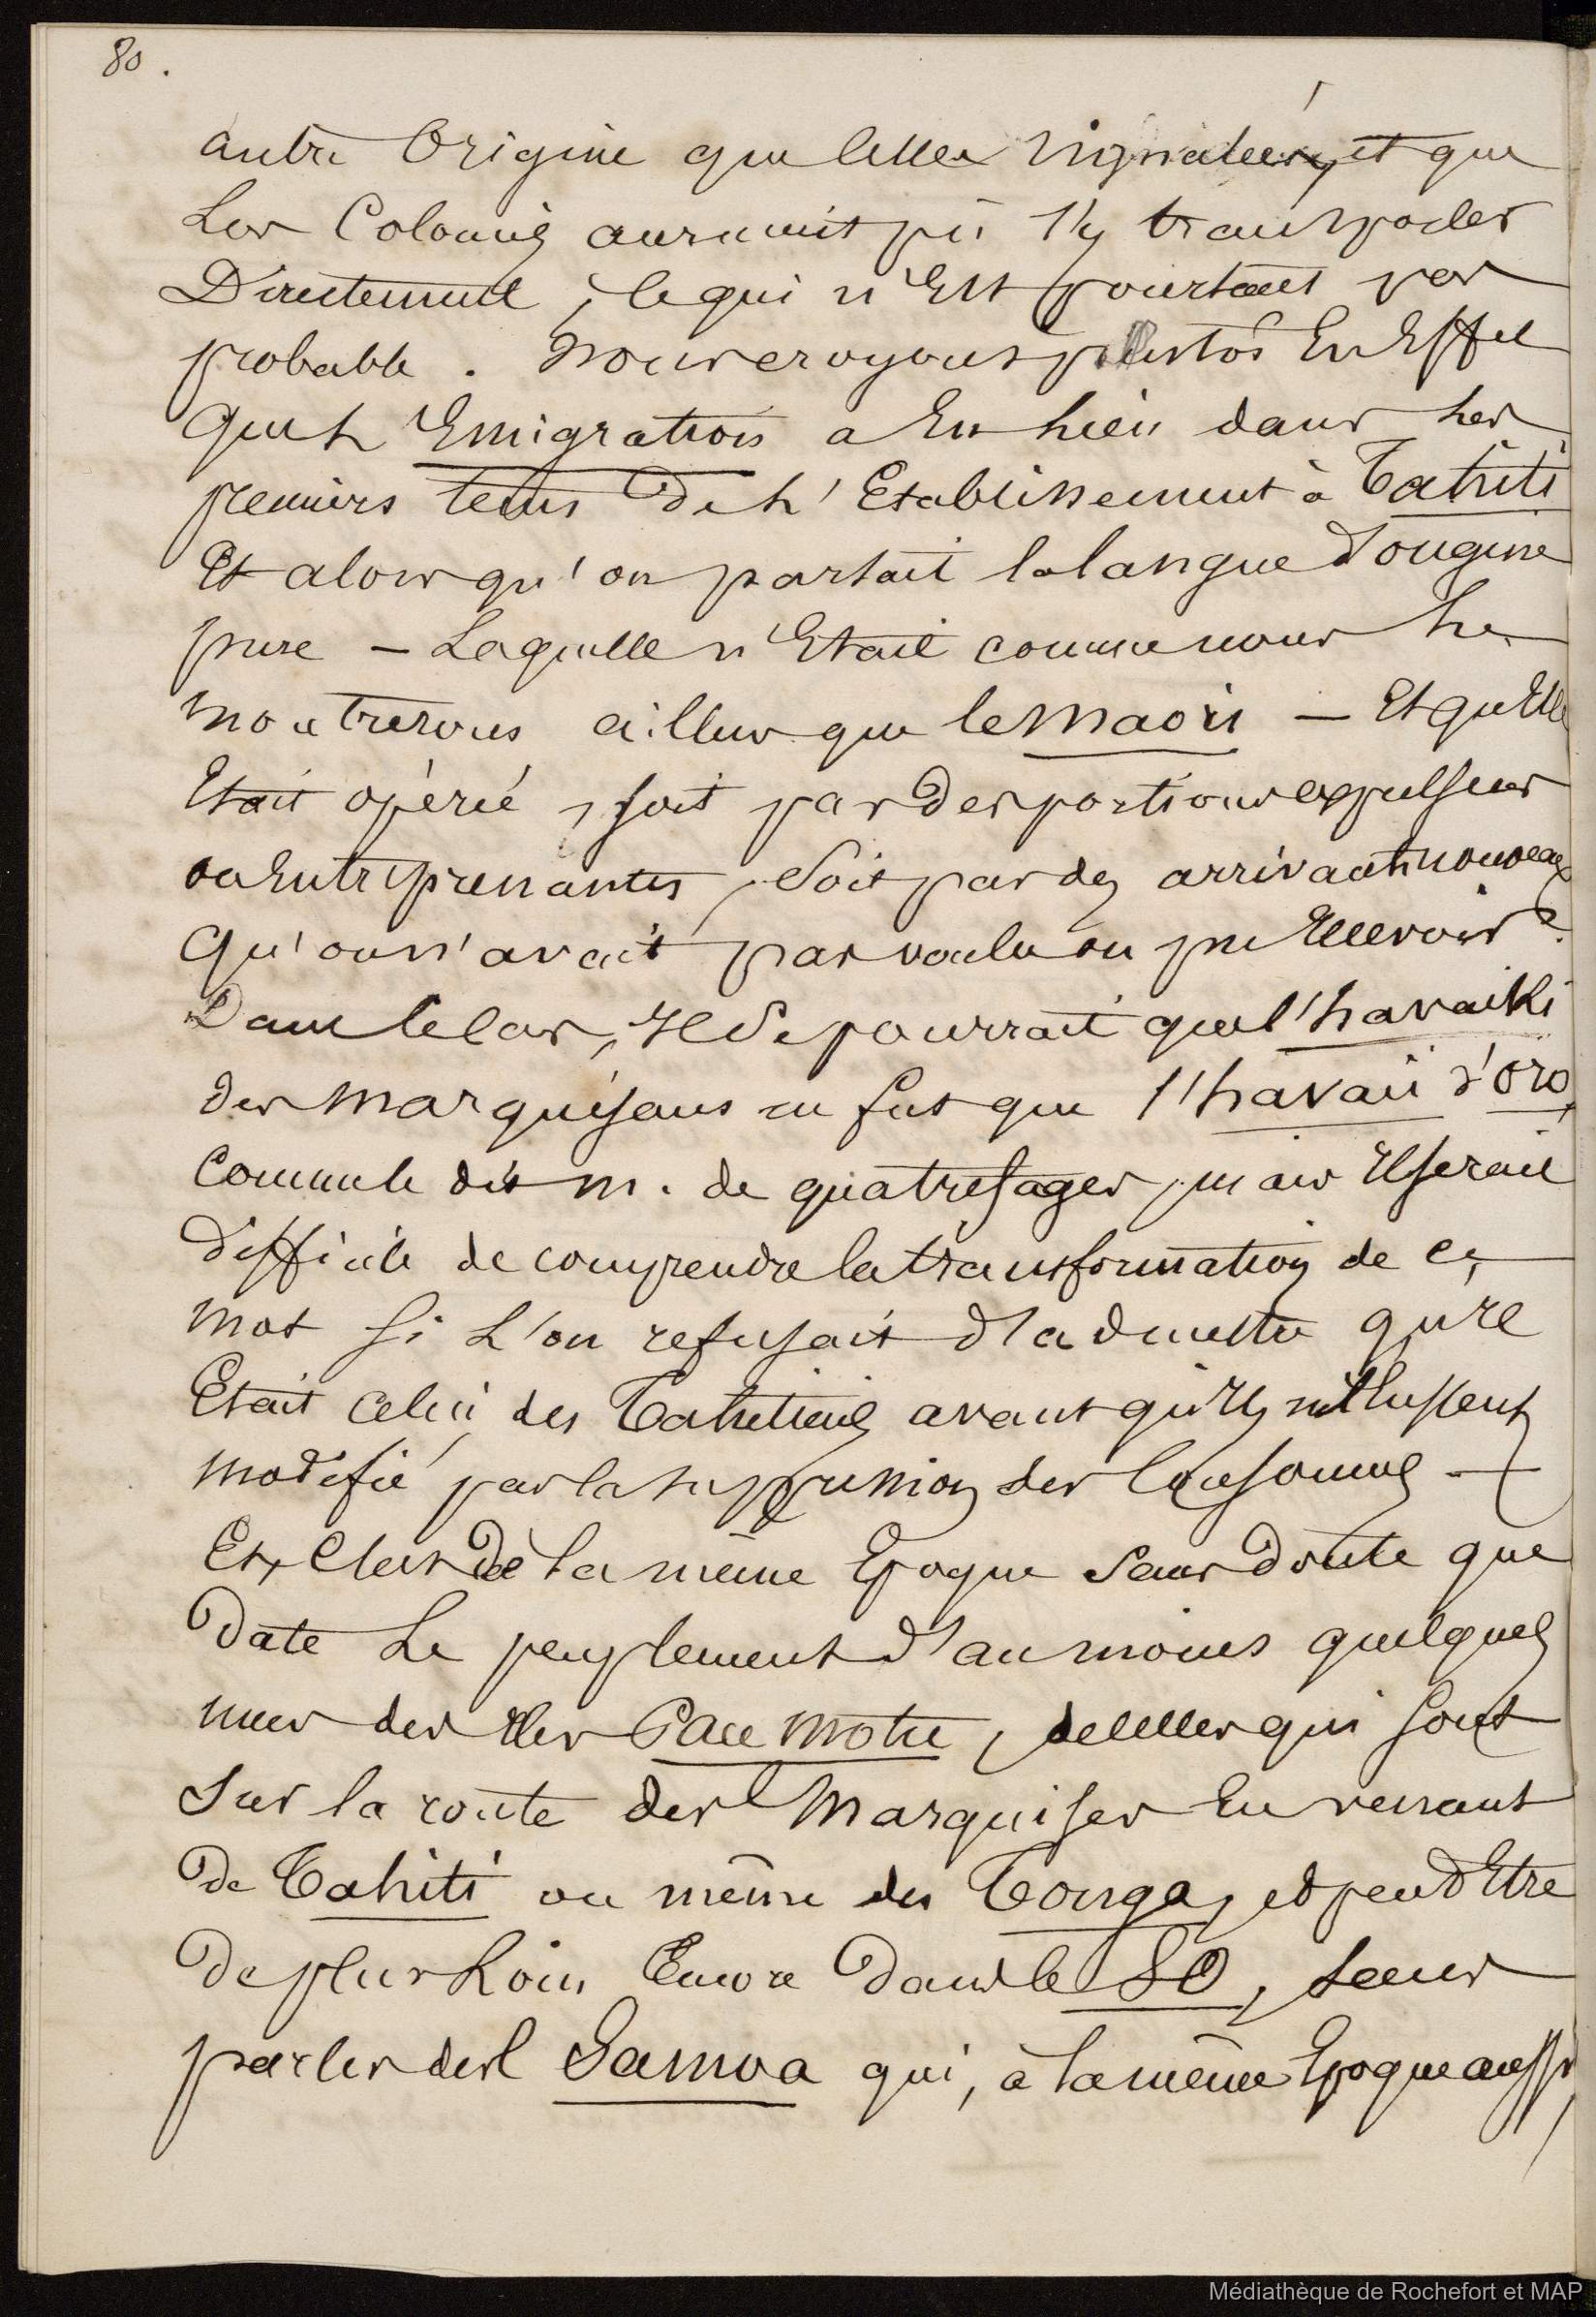 80.
autre Origine que celles signalées, et que
Les Colonies auraient pû s'y transporter
Directement, ce qui n'Est pourtant pas
probable. Nous croyons plutôt En Effet
que l'Emigration a Eu lieu dans les
premiers tems de l'Etablissement à Tahiti
Et alors qu'on parlait la langue d'origine
pure – Laquelle n'Etait comme nous le
montrerons ailleurs que le Maori – Et qu'Elle
Etait opérée, soit par des portions expulsées
ou Entreprenantes, Soit par des arrivants nouveaux
Qu'on n'avait pas voulu ou pu recevoir.
Dans ce cas, Il Se pourrait que l'havaiki
des Marquisans ne fut que l'havaii d'Oro,
Comme le dit M. de quatrefages, mais Il serait
difficile de comprendre la transformation de ce
mot si L'on refusait d'admettre qu'il
Etait celui des Tahitiens avant qu'ils ne l'eussent
modifié par la suppression des Consonnes –
Et, C'est de la même Epoque Sans doute que
Date Le peuplement d'au moins quelques
unes des Iles Pau motu, de celles qui sont
Sur la route des Marquises En venant
De Tahiti ou même des Tonga, et peut Etre
De plus Loin Encore Dans le SO, sans
parler des Samoa qui, à la même Epoque aussi,
Médiathèque de Rochefort et MAP